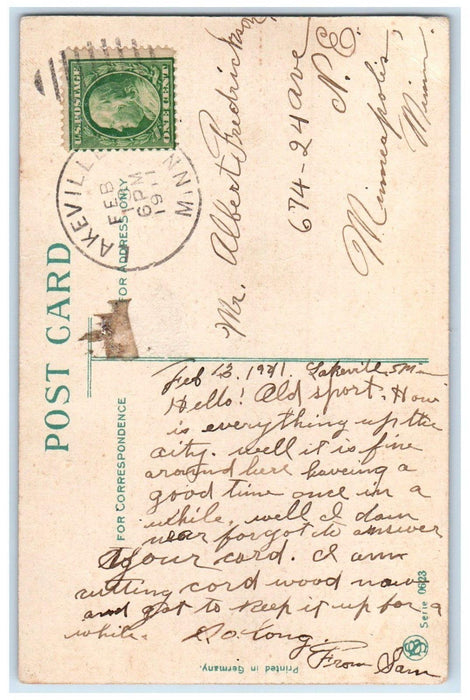 POST CARD
FOR ADDRESS ONLY
U.S. POSTAGE
ONE CENT
LAKEVILLE
FEB
6 PM
1911
MINN
Mr. Albert Fredrickson,
674-24 ave
N. E.
Minneapolis,
Minn.
FOR CORRESPONDENCE
Feb 13, 1911. Lakeville, Min
Hello! Old sport. How
is everything up the
city. well it is fine
around here haveing a
good time once in a
while, well I dam
near forgot to answer
Your card. I am
cutting cord wood now
and got to keep it up for a
while. So long.
From Sam
Printed in Germany.
Serie 0623